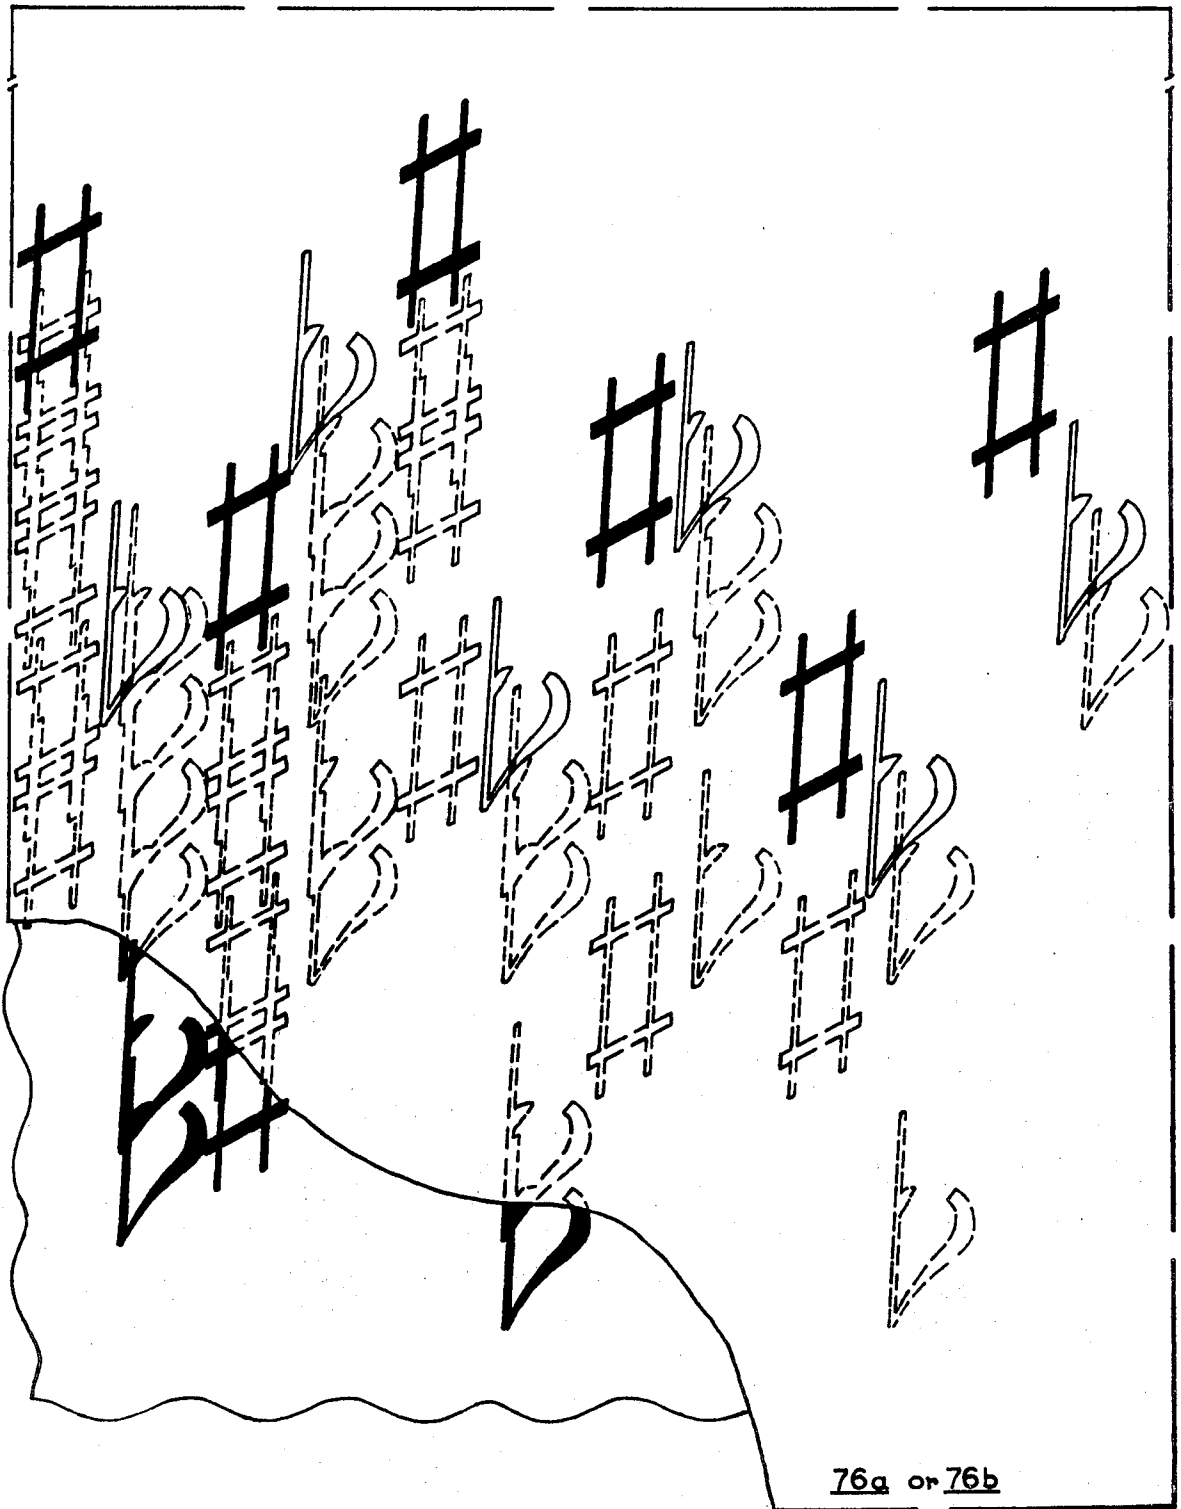 76a or 76b